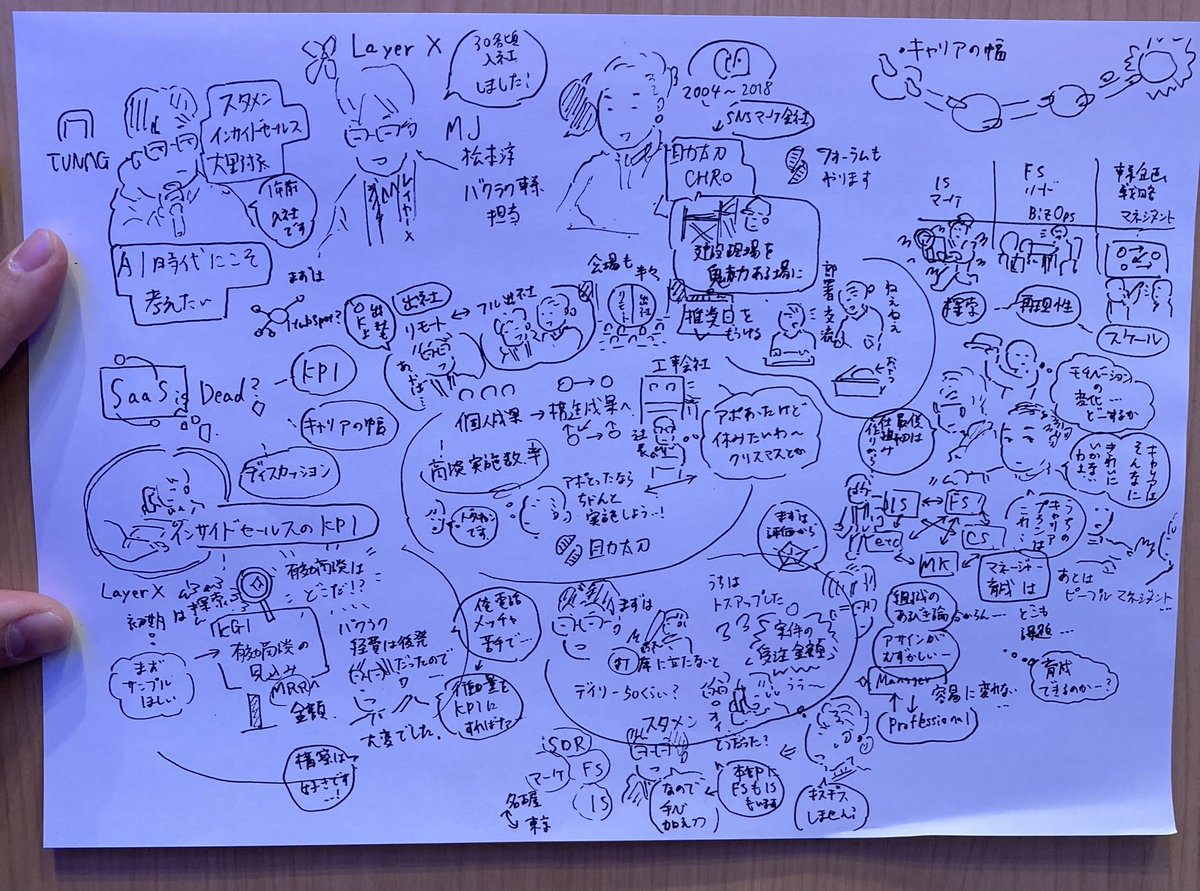 TUNAG
スタメン
インサイドセールス
1年前
入社です
AI時代にこそ
考えたい
Layer X
30名頃
入社
しました!
MJ
松本淳
バクラク事業
担当
レイヤーX
2004〜2018
SNSマーケ会社
CHRO
フォーラムも
やります
建設現場を
魅力ある場に
キャリアの幅
IS
マーケ
FS
リード
BizOps
事業企画
戦略
マネジメント
探索
再現性
スケール
まずは
Hubspot?
出社
リモート
フル出社
会場も
半々
推奨日を
もうける
部署交流
ねえねえ
おやつ
SaaS is Dead?
KPI
キャリアの幅
ディスカッション
インサイドセールスのKPI
個人成果→構造成果へ
工事会社
社長
商談実施数、率
アポあったけど
休みたいわ〜
クリスマスとか
アポとったなら
ちゃんと
実施しよう…!
モチベーション
の
変化…
どーするか
キャリアは
そんなに
きれいに
いかない
わ
うちの
キャリア
プランは
これ!
IS
FS
etc
CS
MK
マネージャー
育成は
どこも
課題…
あとは
ピープルマネジメント…
育成
できるのか…?
まずは
評価から
Layer X
初期は
探索…
まず
サンプル
ほしい
KGI
有効商談の
見込み
MRR
金額
有効商談は
どこだ!?
バクラク
経費は後発
だったので
大変でした。
僕電話
メッチャ
苦手で…
行動量を
KPIに
すれば…
模索は
好きです
…!
まずは
打席に立たないと
デイリー50くらい?
うちは
トスアップした
案件の
受注金額
うう〜
組織の
アサインが
むずかしい…
Manager
Professional
容易に変れない
スタメン
SDR
マーケ
FS
IS
名古屋
東京
なので
手心
加える
どうだった?
本部に
FSもISも
います
ギスギス
しません?